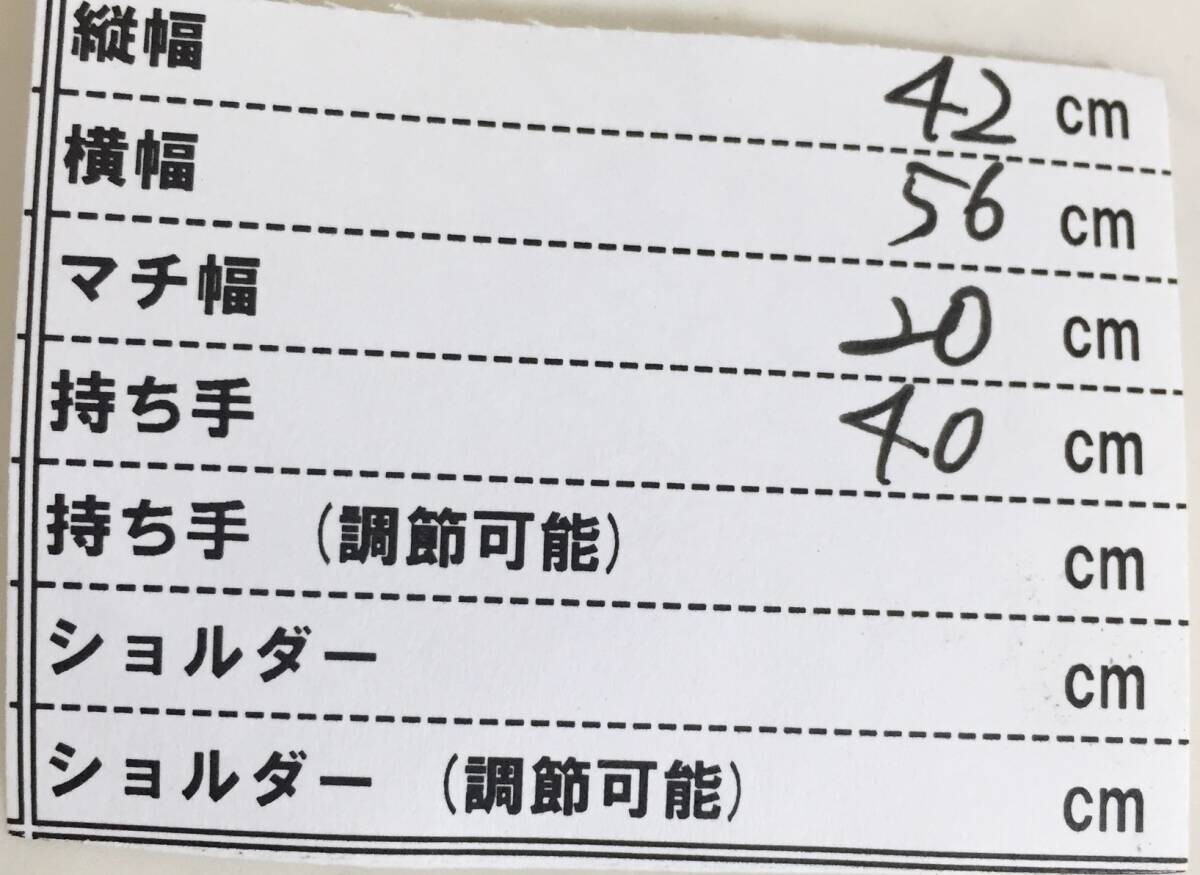 縦幅 42 cm
横幅 56 cm
マチ幅 20 cm
持ち手 40 cm
持ち手 (調節可能) cm
ショルダー cm
ショルダー (調節可能) cm